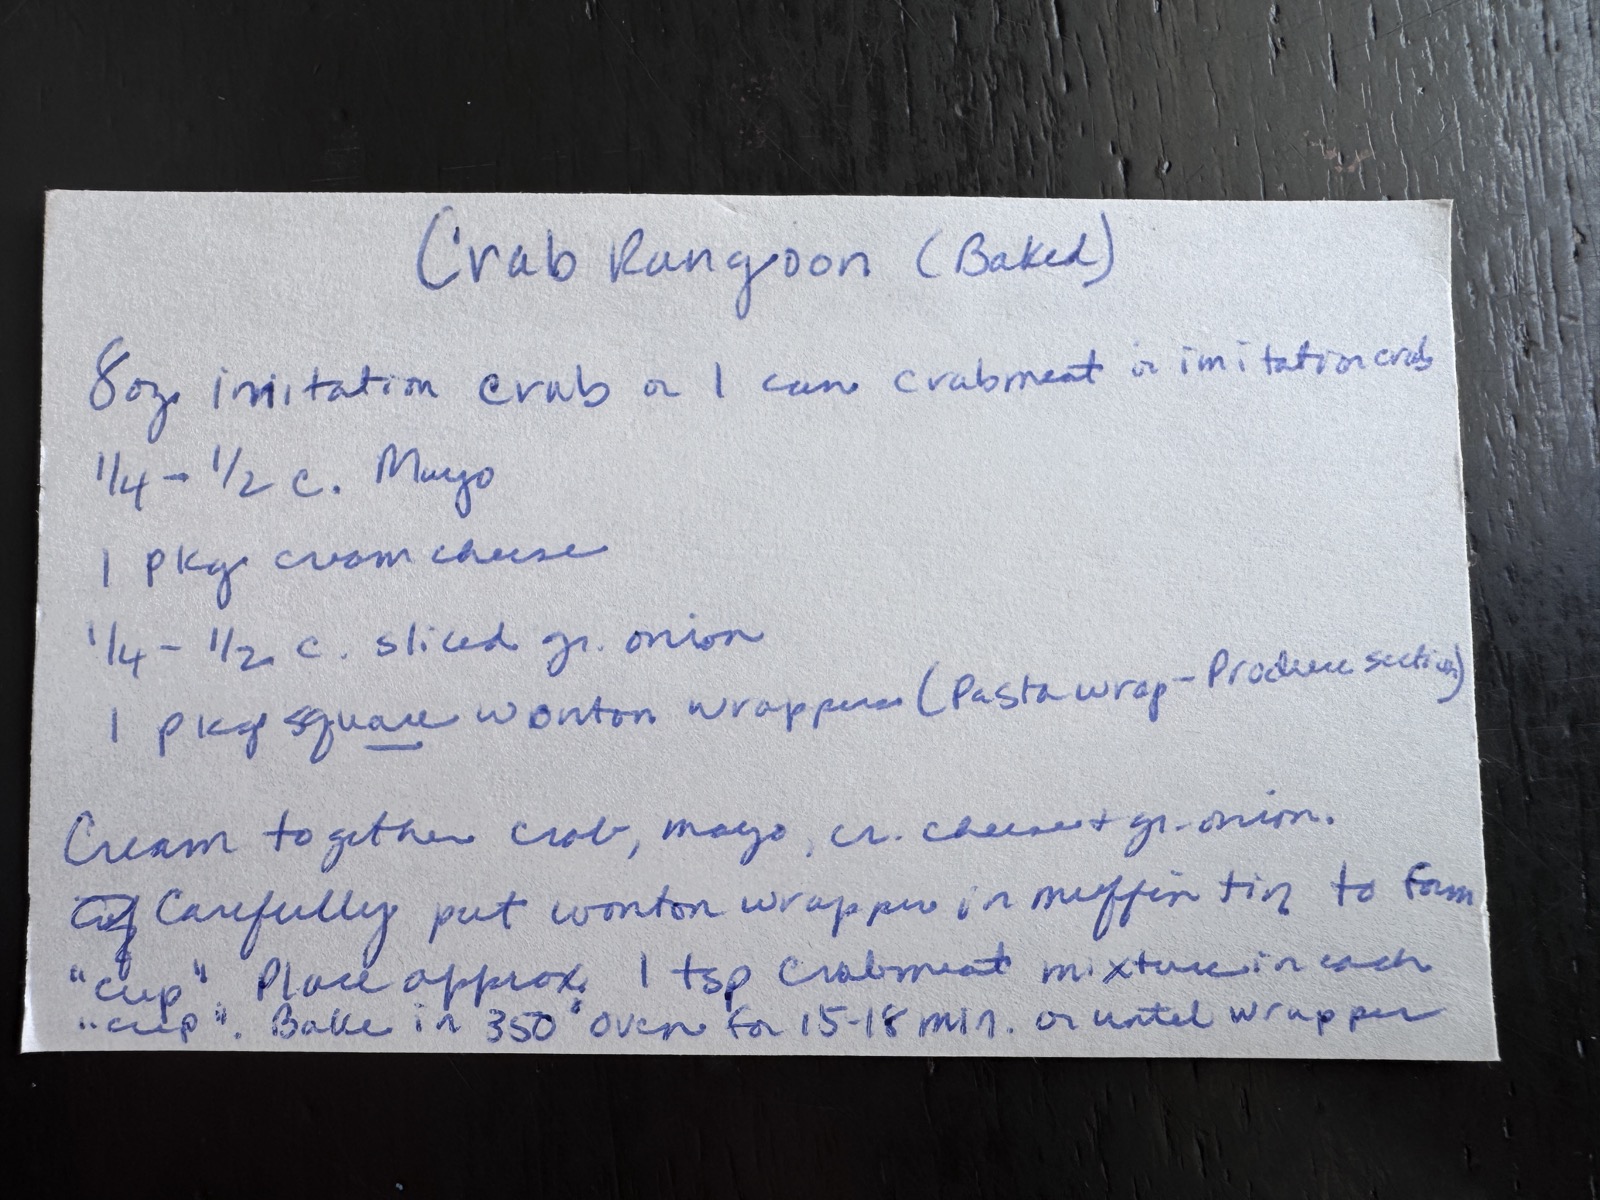 Crab Rangoon (Baked)
8oz. imitation crab or 1 can crabmeat or imitation crab
1/4 - 1/2 c. Mayo
1 pkg cream cheese
1/4 - 1/2 c. sliced gr. onion
1 pkg square wonton wrappers (Pasta wrap - Produce section)
Cream together crab, mayo, cr. cheese + gr. onion.
Carefully put wonton wrapper in muffin tin to form
"cup". Place approx. 1 tsp crabmeat mixture in each
"cup". Bake in 350° oven for 15-18 min. or until wrapper